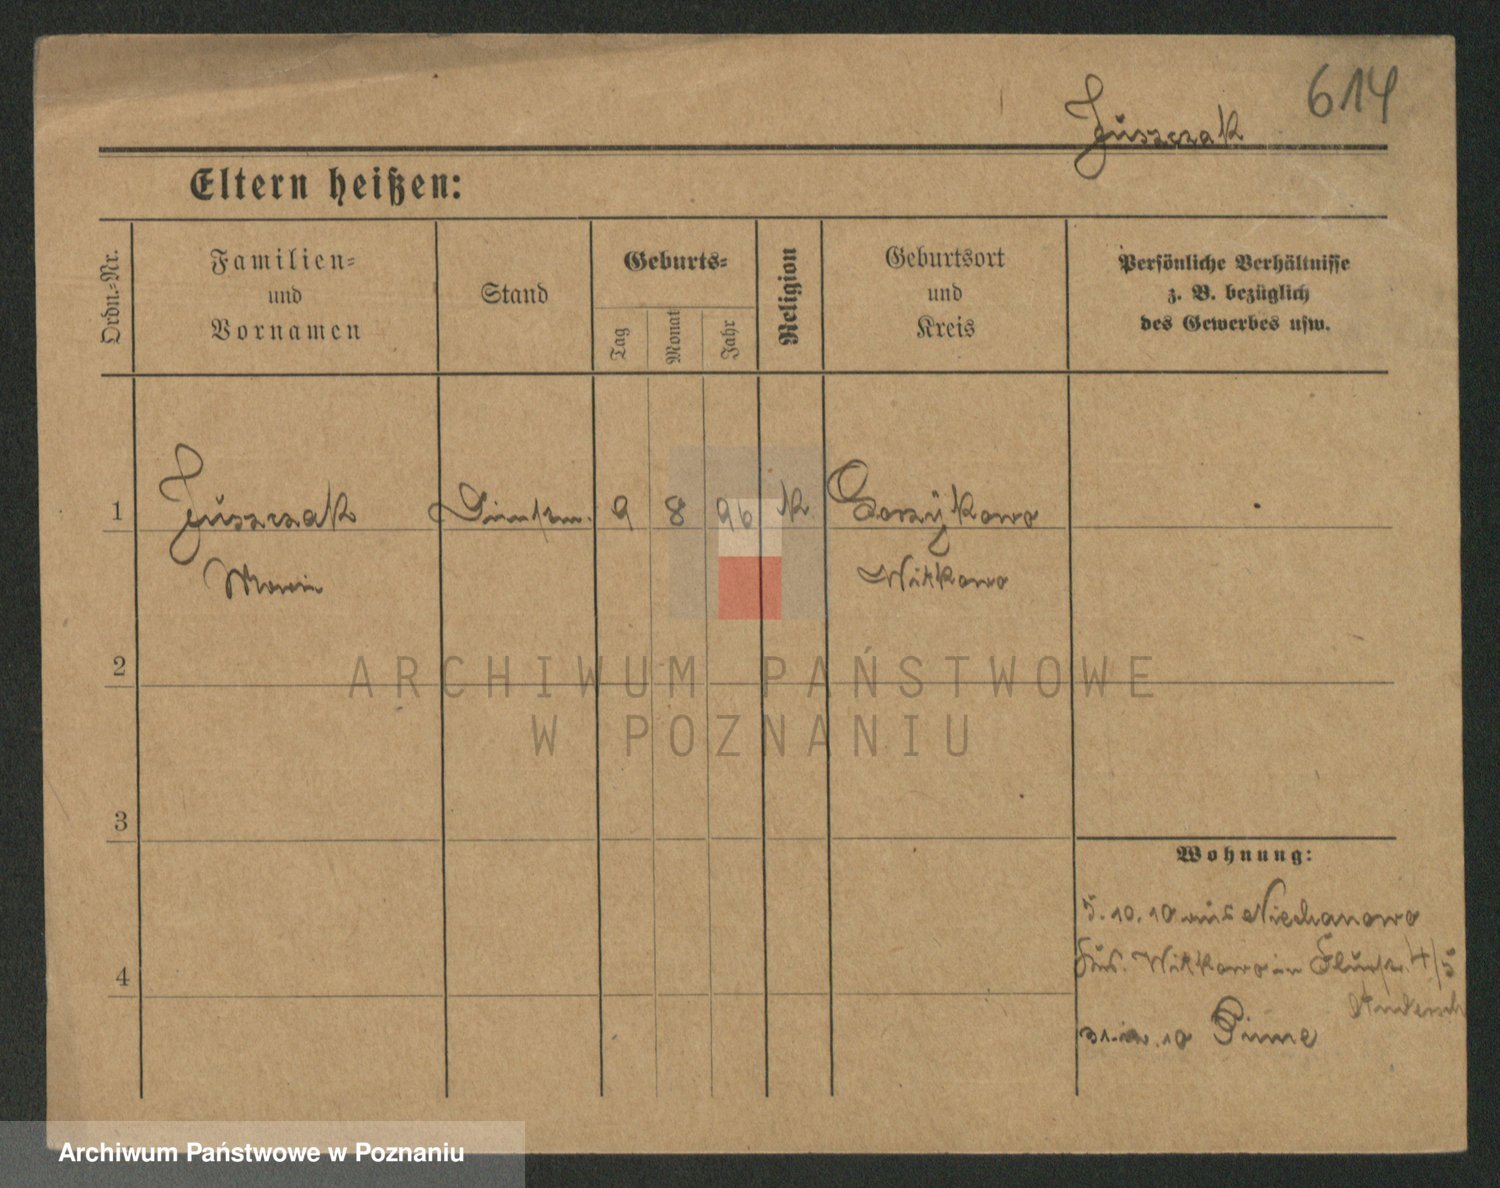 614
Juszczak
Eltern heißen:
Ordn.-Nr.
Familien-
und
Vornamen
Stand
Geburts-
Tag
Monat
Jahr
Religion
Geburtsort
und
Kreis
Persönliche Verhältnisse
z. B. bezüglich
des Gewerbes usw.
1
Juszczak
9
8
96
k
Gorzykowo
Witkowo
2
ARCHIWUM PAŃSTWOWE
W POZNANIU
3
Wohnung:
5.10.10 aus Niechanowo
Witkowo in 4/5
4
10 Pinne
Archiwum Państwowe w Poznaniu